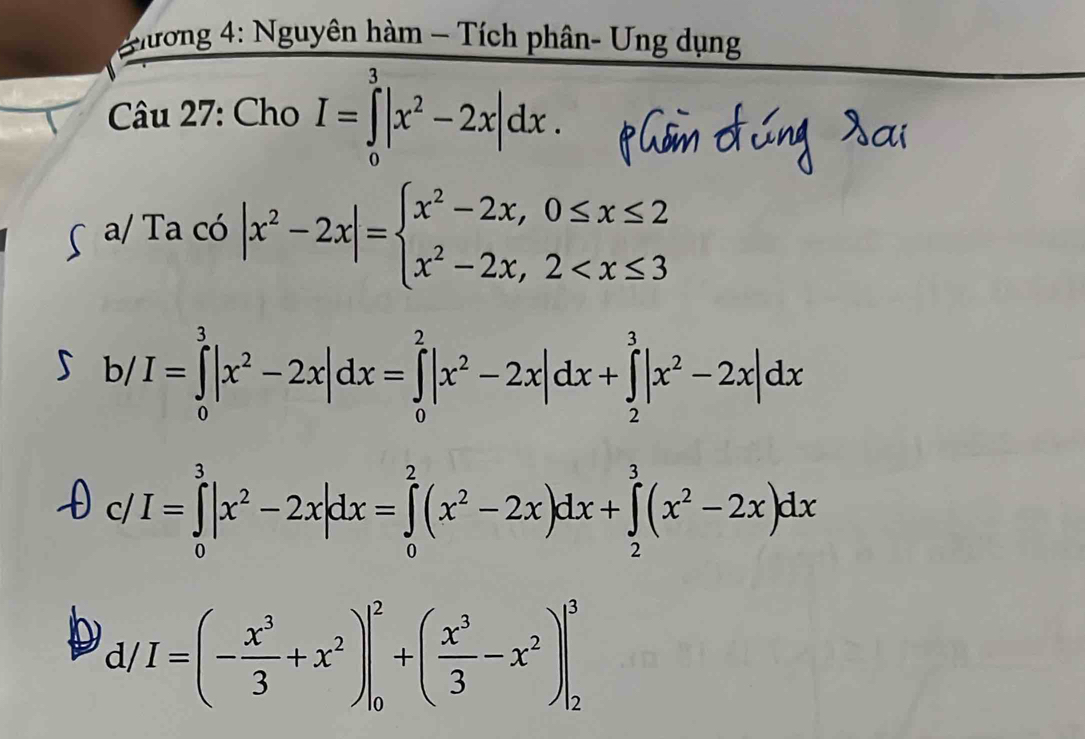 ương 4: Nguyên hàm – Tích phân- Ưng dụng
Câu 27: Cho I = ∫₀³ |x² − 2x| dx . phần đúng sai
S a/ Ta có |x² − 2x| = { x² − 2x, 0 ≤ x ≤ 2
x² − 2x, 2 < x ≤ 3
S b/ I = ∫₀³ |x² − 2x| dx = ∫₀² |x² − 2x| dx + ∫₂³ |x² − 2x| dx
Đ c/ I = ∫₀³ |x² − 2x| dx = ∫₀² (x² − 2x)dx + ∫₂³ (x² − 2x)dx
Đ d/ I = (−x³/3 + x²)|₀² + (x³/3 − x²)|₂³